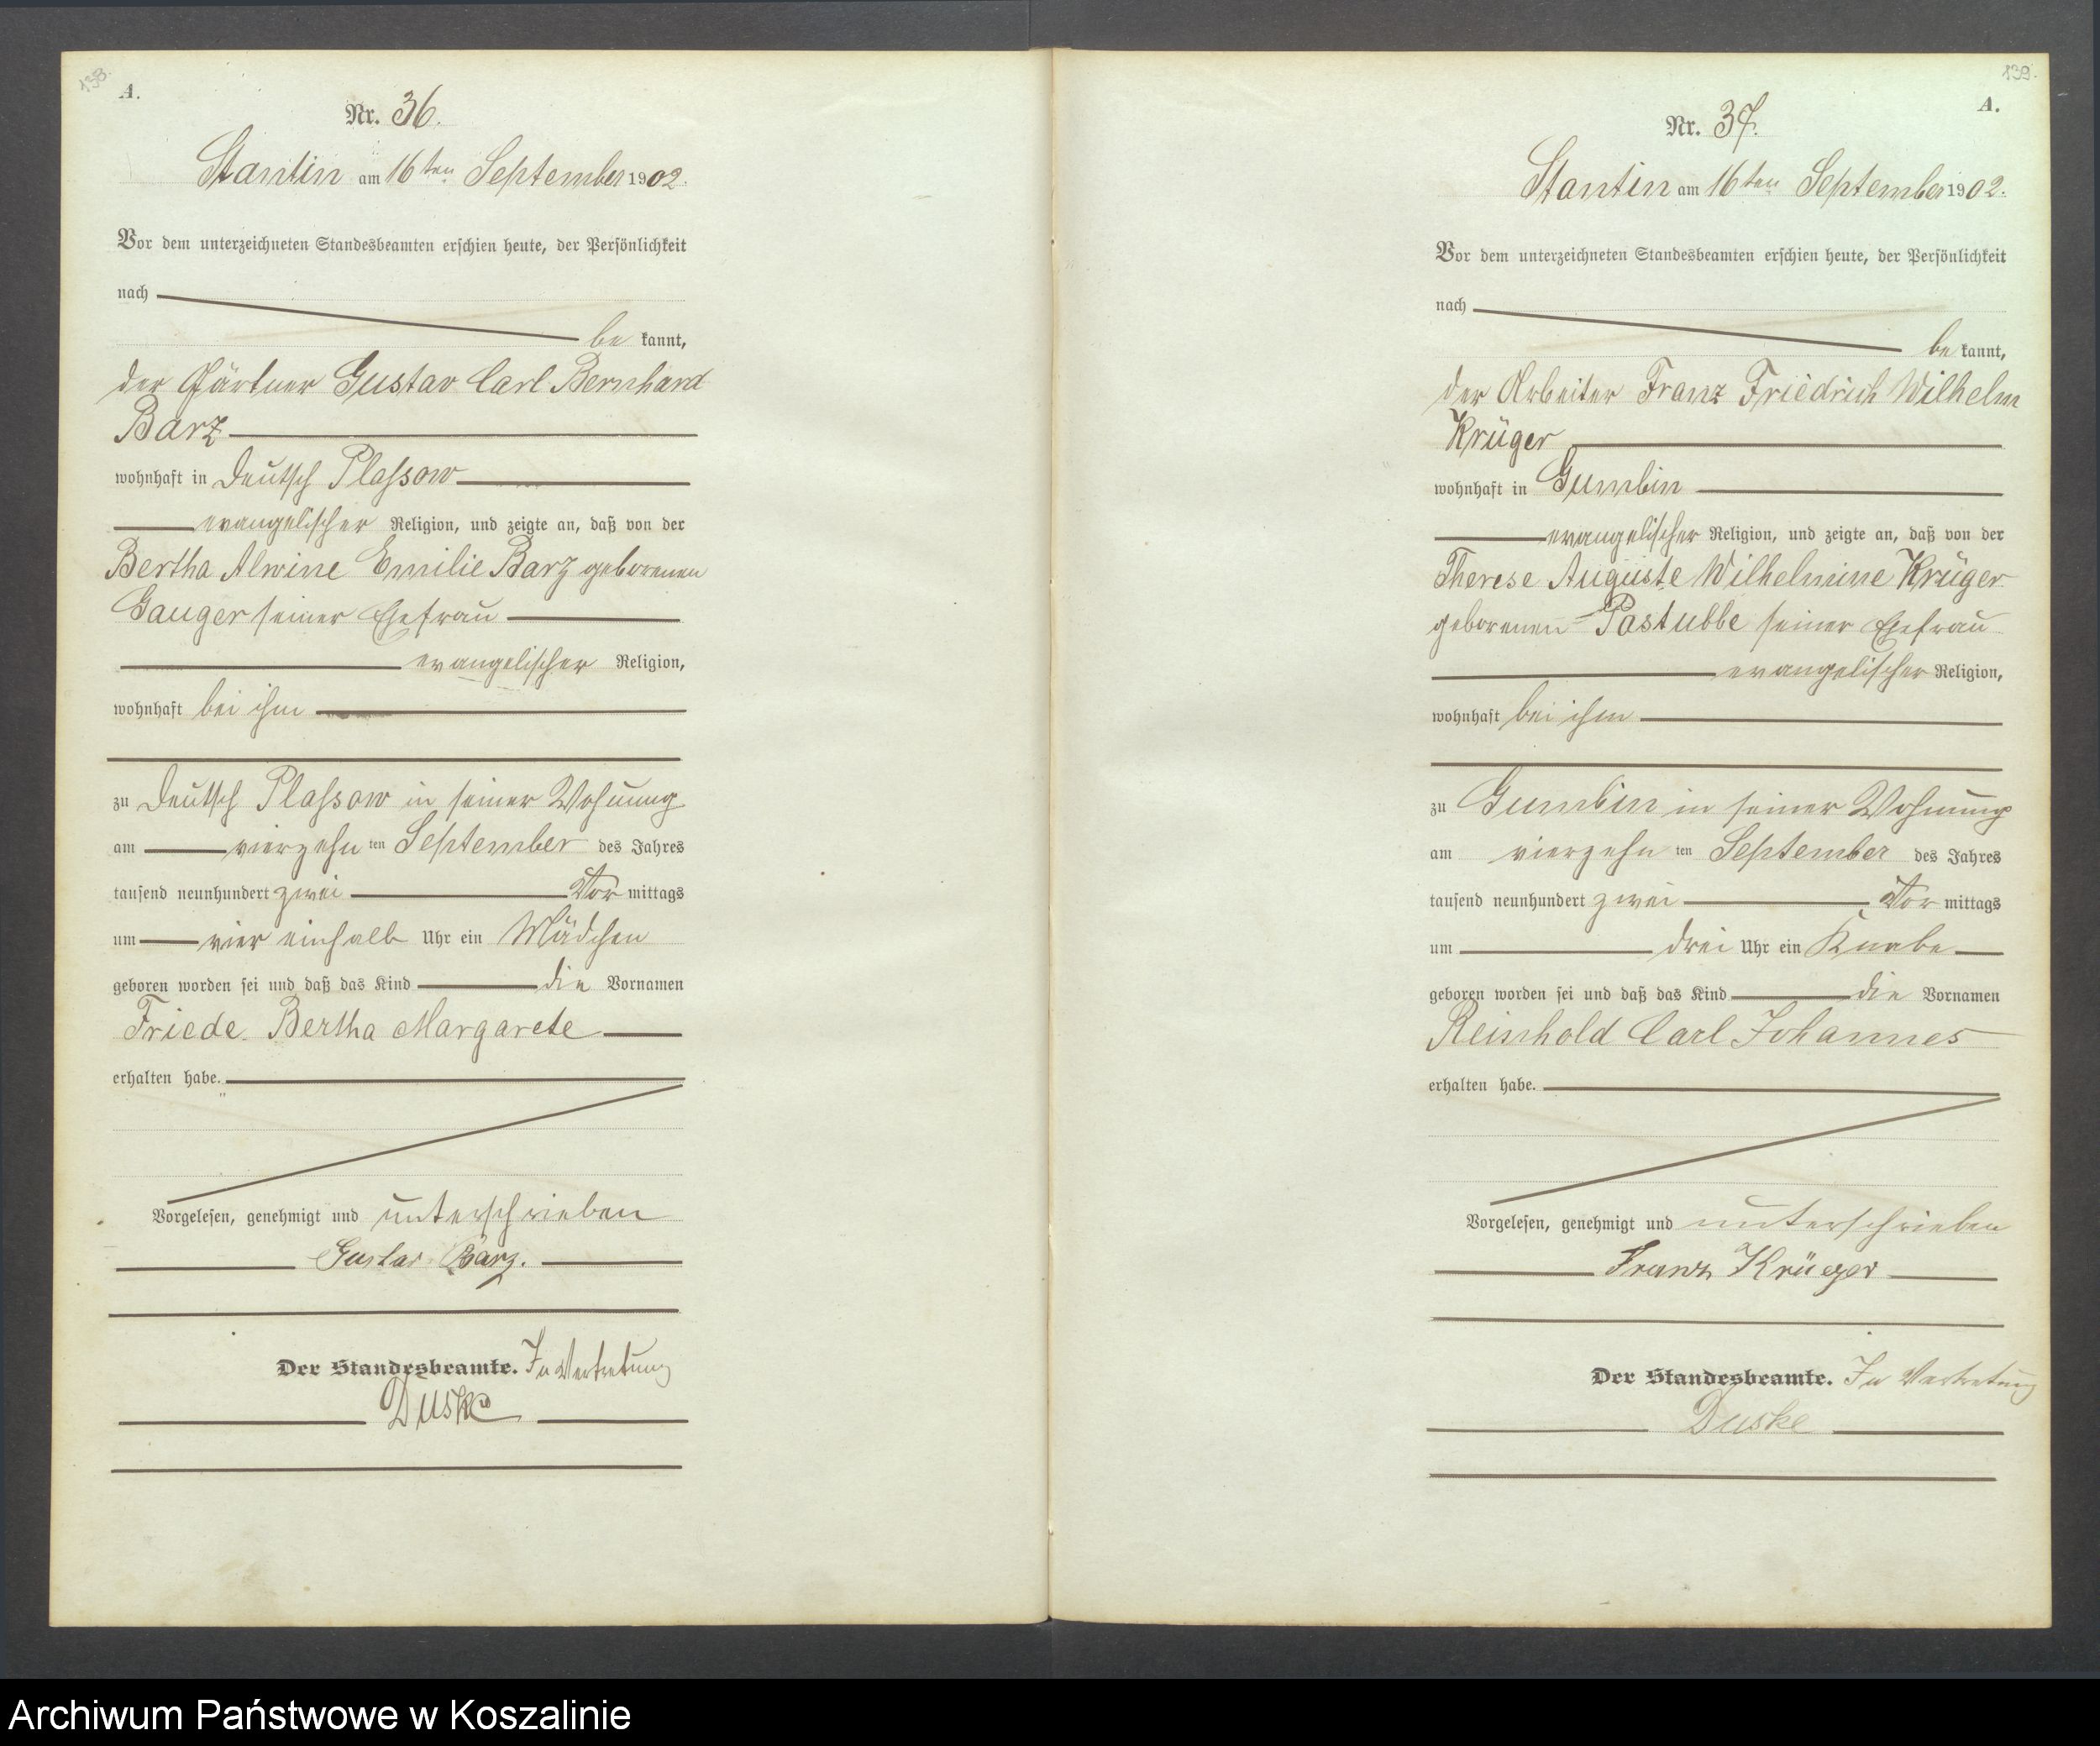 138.
A.
Nr. 36.
Stantin am 16ten September 1902.
Vor dem unterzeichneten Standesbeamten erschien heute, der Persönlichkeit
nach
be kannt,
der Gärtner Gustav Carl Bernhard
Barz
wohnhaft in Deutsch Plassow
evangelischer Religion, und zeigte an, daß von der
Bertha Alwine Emilie Barz geborenen
Gauger seiner Ehefrau
evangelischer Religion,
wohnhaft bei ihm
zu Deutsch Plassow in seiner Wohnung
am vierzehn ten September des Jahres
tausend neunhundert zwei Vor mittags
um vier einhalb Uhr ein Mädchen
geboren worden sei und daß das Kind die Vornamen
Friede Bertha Margarete
erhalten habe.
Vorgelesen, genehmigt und unterschrieben
Gustav Barz.
Der Standesbeamte. In Vertretung
Duske
139.
A.
Nr. 37.
Stantin am 16ten September 1902.
Vor dem unterzeichneten Standesbeamten erschien heute, der Persönlichkeit
nach
be kannt,
der Arbeiter Franz Friedrich Wilhelm
Krüger
wohnhaft in Gumbin
evangelischer Religion, und zeigte an, daß von der
Therese Auguste Wilhelmine Krüger
geborenen Pastubbe seiner Ehefrau
evangelischer Religion,
wohnhaft bei ihm
zu Gumbin in seiner Wohnung
am vierzehn ten September des Jahres
tausend neunhundert zwei Vor mittags
um drei Uhr ein Knabe
geboren worden sei und daß das Kind die Vornamen
Reinhold Carl Johannes
erhalten habe.
Vorgelesen, genehmigt und unterschrieben
Franz Krüger
Der Standesbeamte. In Vertretung
Duske
Archiwum Państwowe w Koszalinie